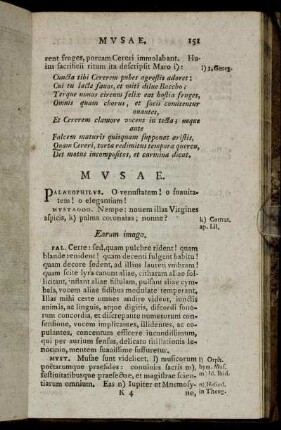 MVSAE. 151
rent fruges, porcam Cereri immolabant. Hu-
ius sacrificii ritum ita descripsit Maro i): i) 1. Georg.
Cuncta tibi Cererem pubes agrestis adoret:
Cui tu lacte fauos, et miti dilue Baccho:
Terque nouas circum felix eat hostia fruges,
Omnis quam chorus, et socii comitentur
ouantes,
Et Cererem clamore vocent in tecta; neque
ante
Falcem maturis quisquam supponat aristis,
Quam Cereri, torta redimitus tempora quercu,
Det motus incompositos, et carmina dicat.
MVSAE.
PALAEOPHILVS. O venustatem! o suauita-
tem! o elegantiam!
MYSTAGOG. Nempe: nouem illas Virgines
aspicis, k) palma coronatas; nonne? k) Cornut.
ap. Lil.
Earum imago.
PAL. Certe: sed, quam pulchre rident! quam
blande renident! quam decenti fulgent habitu!
quam decore sedent, ad illius lauri vmbram!
quam scite lyra canunt aliae, citharam aliae sol-
licitant, inflant aliae fistulam, pulsant aliae cym-
bala, vocem aliae fidibus modulate temperant,
Illas mihi certe omnes audire videor, scitis
animis, ac linguis, atque digitis, discordi sono-
rum concordia, et discrepante numerorum con-
sensione, vocem implicantes, illidentes, ac co-
pulantes, concentum efficere iucundissimum,
qui per aurium sensus, delicato titillationis le-
nocinio, mentem suauissime suffuretur.
MYST. Musae sunt videlicet, l) musicorum l) Orph.
poëtarumque praesides: conuiuiis sacris m), hym. Mus.
festiuitatibusque praefectae, et magistrae scien- m) Id. ibid.
tiarum omnium. Eas n) Iupiter et Mnemosy- n) Hesiod.
K 4 ne, in Theog.